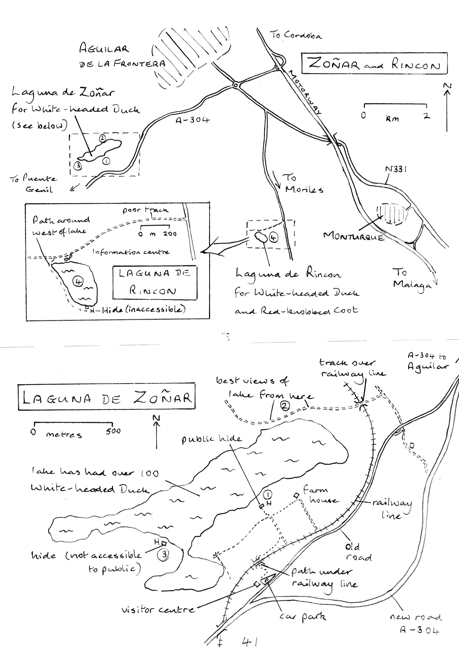 To Cordoba
AGUILAR
DE LA FRONTERA
ZOÑAR AND RINCON
MOTORWAY
0 km 2
N
Laguna de Zoñar
for White-headed Duck
(see below)
A-304
2
1
3
To Puente
Genil
To
Moriles
N331
MONTURQUE
To
Malaga
4
Path around
west of lake
poor track
0 m 200
Information centre
LAGUNA DE
RINCON
4
H-Hide (inaccessible)
Laguna de Rincon
for White-headed Duck
and Red-knobbed Coot
LAGUNA DE ZOÑAR
N
0 metres 500
best views of
lake from here
2
track over
railway line
A-304 to
Aguilar
public hide
lake has had over 100
White-headed Duck
1
H
farm
house
railway
line
H
hide (not accessible
to public)
3
old
road
path under
railway line
visitor centre
car park
new road
A-304
41